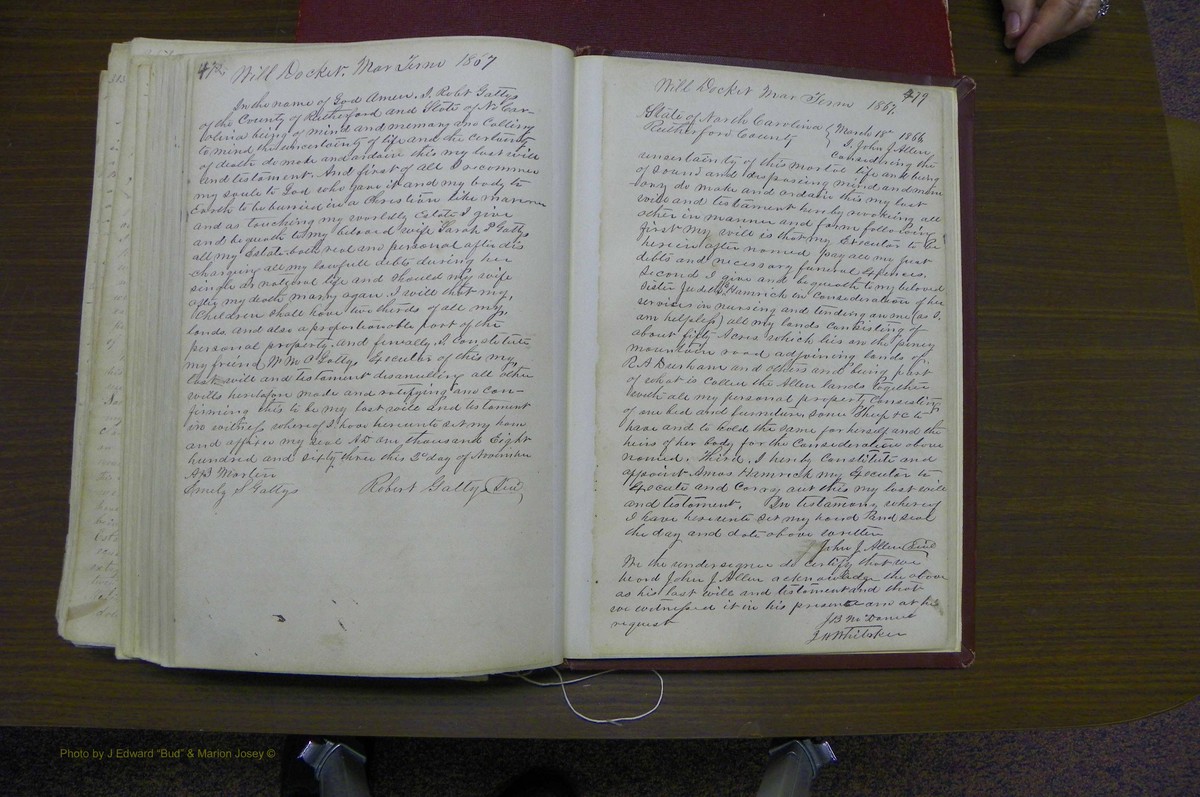 478
Will Docket. Mar Term 1867
In the name of God Amen. I. Robt Gattys
of the County of Rutherford and State of No Car-
olina being of mind and memory and Calling
to mind the uncertainty of life and the certainty
of death do make and ordain this my last will
and testament. And first of all I recommend
my soule to God who gave it and my body to
Earth to be burried in a Christian like manner
and as touching my worldly Estate I give
and bequeath to my beloved wife Sarah P Gattys
all my Estate both real and personal after dis
charging all my lawfull debts during her
single or natural life and should my wife
after my death marry again I will that my
Children shall have two thirds of all my
lands and also a proportionable part of the
personal property. And finally I Constitute
my friend Wm A Gattys Executor of this my
last will and testament disanulling all other
wills heretofore made and ratifying and con-
firming this to be my last will and testament
in witness whereof I have hereunto set my hand
and affixed my seal AD one thousand Eight
hundred and sixty three this 3d day of November
AB Martin
Emily S Gattys Robert Gattys (Seal)
Will Docket Mar Term 1867. 479
State of North Carolina
Rutherford County
March 18th 1866
I. John J Allen
Considering the
uncertainty of this mortal life and being
of sound and disposing mind and mem
ory do make and ordain this my last
will and testament hereby revoking all
other in manner and form following
first My will is that my Executor to be
herein after named pay all my just
debts and necessary funeral Expenses.
Second I give and bequeath to my beloved
Sister Judith Hamrick in Consideration of her
services in nursing and tending on me (as I
am helpless) all my lands Consisting of
about fifty Acres which lies on the piney
mountain road adjoining lands of
R A Durham and others and being part
of what is Called the Allen lands together
with all my personal property Consisting
of one bed and furniture, some Sheep &c to
have and to hold the same for herself and the
heirs of her body for the Consideration above
named. Third. I hereby Constitute and
appoint Amos Hamrick my Executor to
Execute and Carry out this my last will
and testament. In testamony whereof
I have hereunto set my hand and seal
the day and date above written
John J Allen (Seal)
We the undersigned do certify that we
heard John J Allen acknowledge the above
as his last will and testament and that
we witnessed it in his presence and at his
request
J B McDaniel
J W Whitaker
Photo by J Edward "Bud" & Marion Josey ©